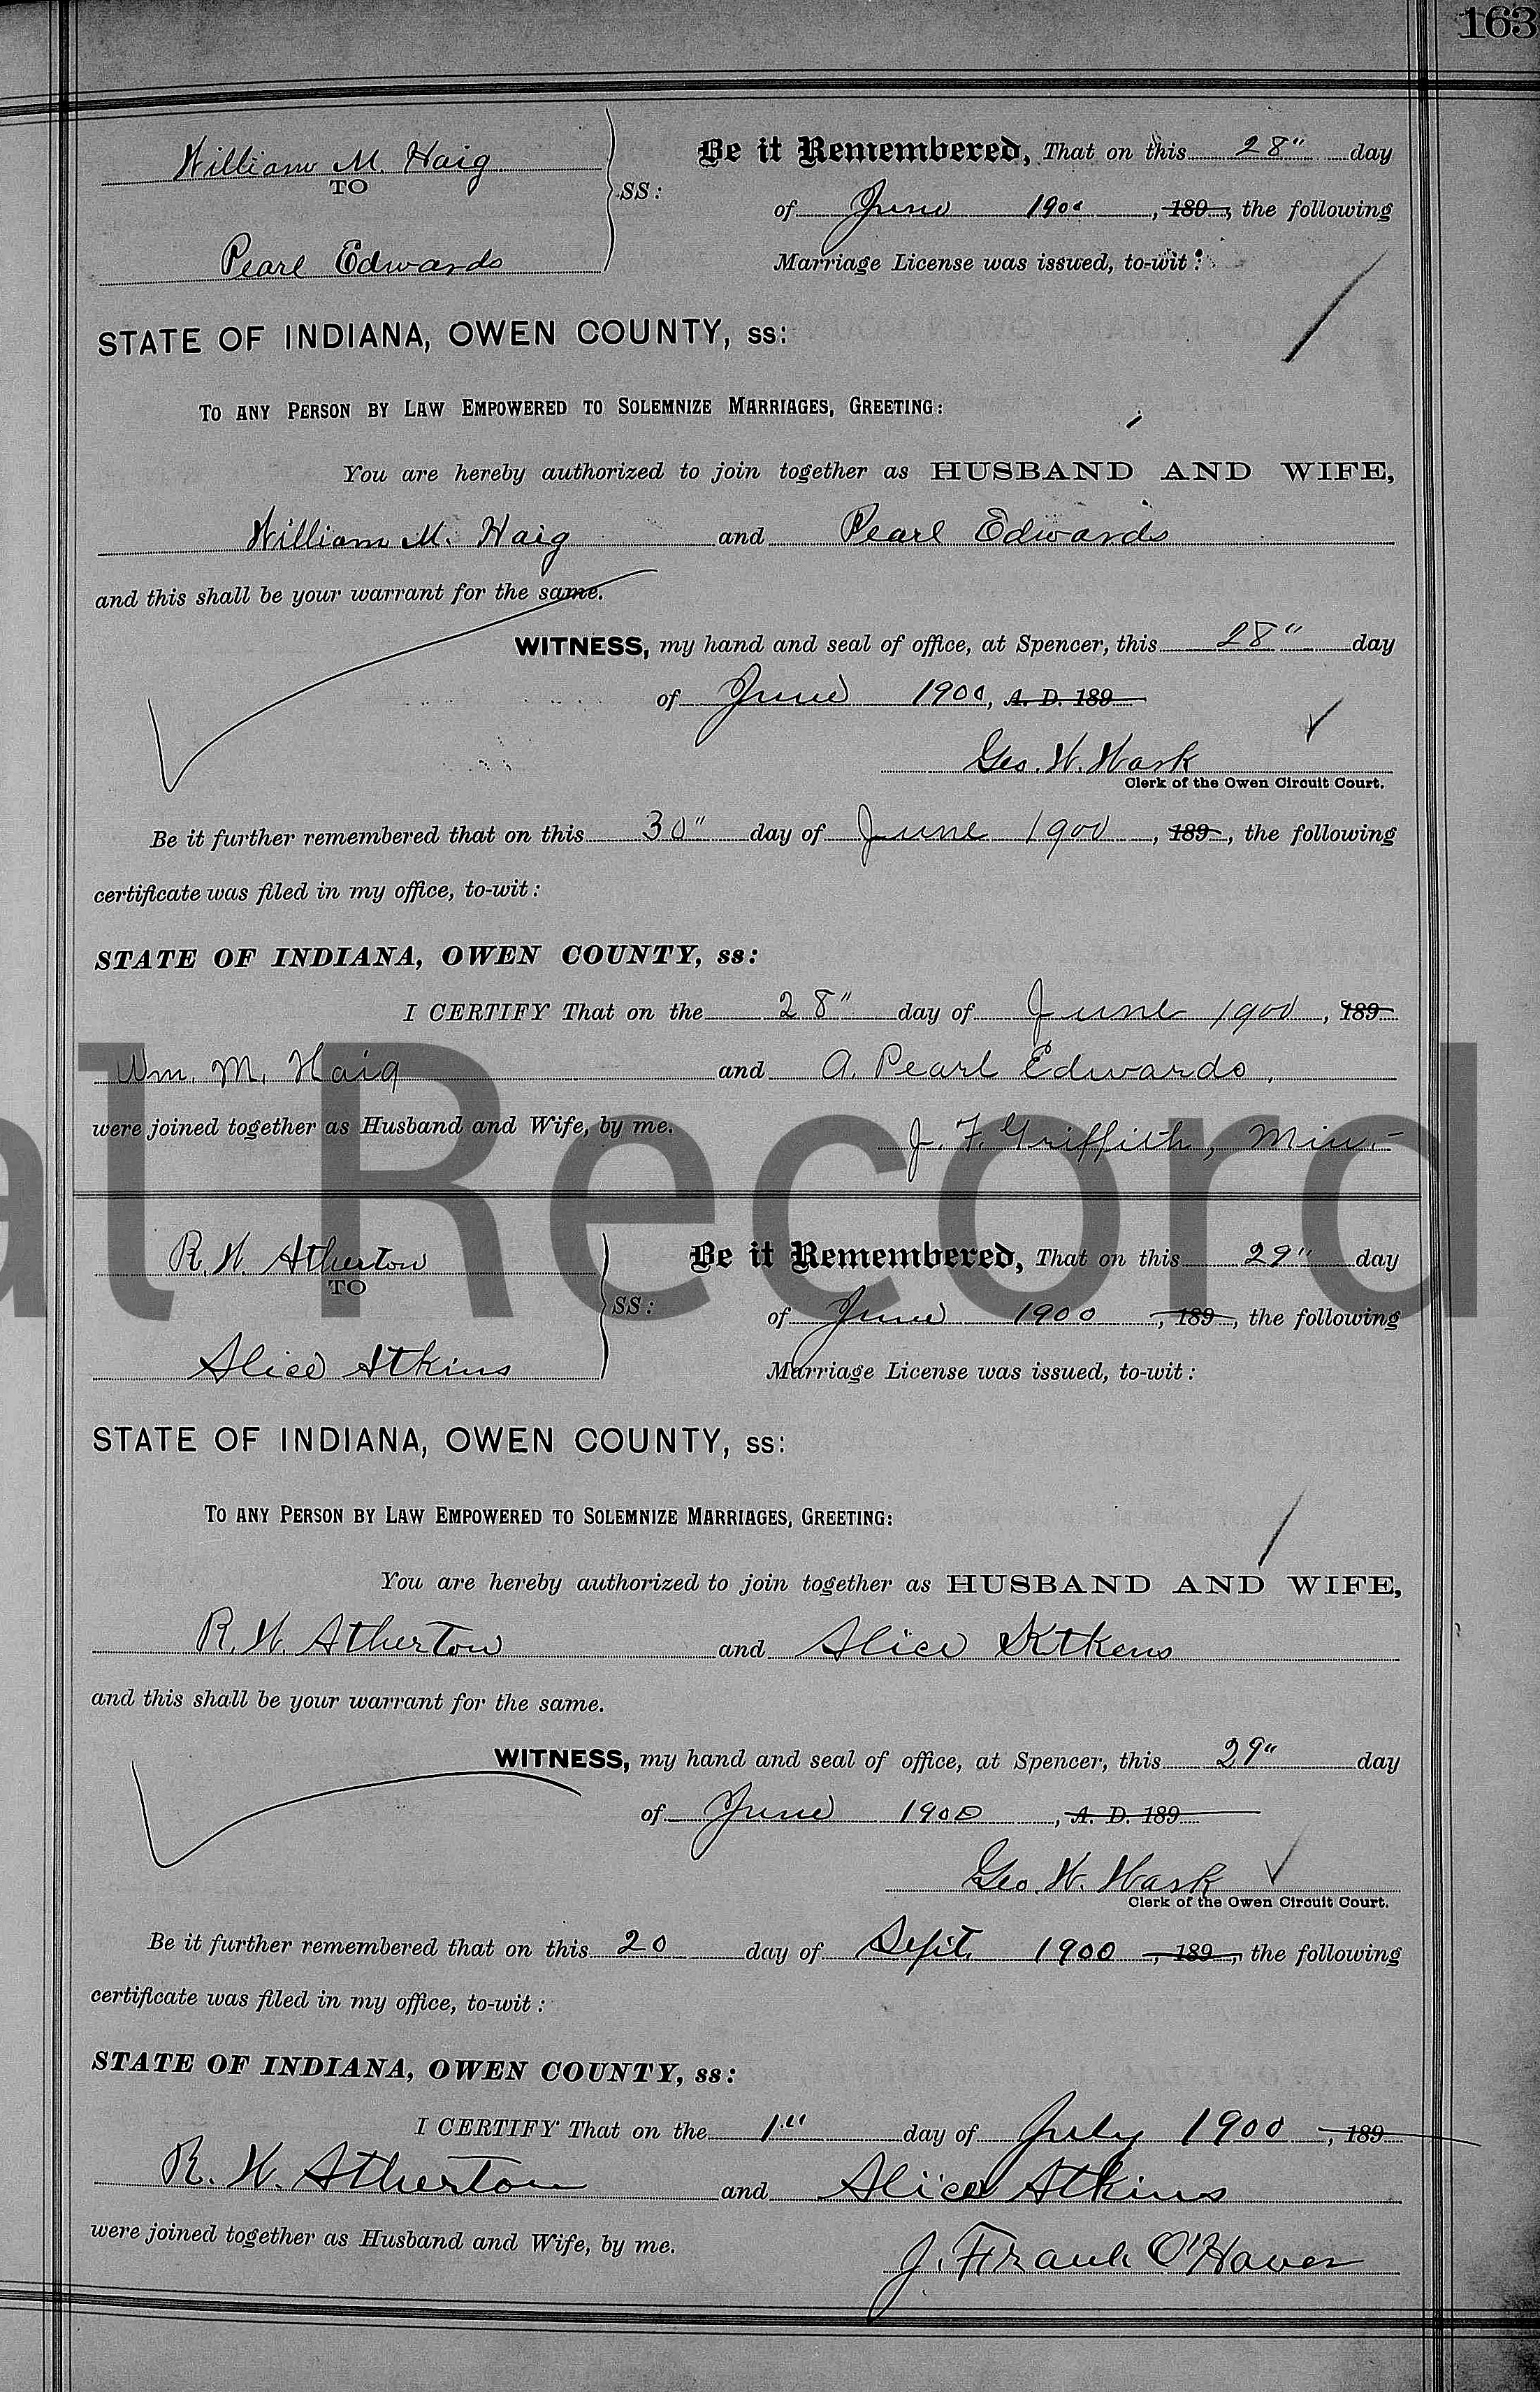 163
William M. Haig
TO
Pearl Edwards
SS:
Be it Remembered, That on this 28" day
of June 1900, 189, the following
Marriage License was issued, to-wit:
STATE OF INDIANA, OWEN COUNTY, ss:
TO ANY PERSON BY LAW EMPOWERED TO SOLEMNIZE MARRIAGES, GREETING:
You are hereby authorized to join together as HUSBAND AND WIFE,
William M. Haig and Pearl Edwards
and this shall be your warrant for the same.
WITNESS, my hand and seal of office, at Spencer, this 28" day
of June 1900, A. D. 189
Geo. W. Wark
Clerk of the Owen Circuit Court.
Be it further remembered that on this 30" day of June 1900, 189, the following
certificate was filed in my office, to-wit:
STATE OF INDIANA, OWEN COUNTY, ss:
I CERTIFY That on the 28" day of June 1900, 189
Wm. M. Haig and A. Pearl Edwards,
were joined together as Husband and Wife, by me.
J. F. Griffith, Min.-
al Record
R. W. Atherton
TO
Alice Atkins
SS:
Be it Remembered, That on this 29" day
of June 1900, 189, the following
Marriage License was issued, to-wit:
STATE OF INDIANA, OWEN COUNTY, ss:
TO ANY PERSON BY LAW EMPOWERED TO SOLEMNIZE MARRIAGES, GREETING:
You are hereby authorized to join together as HUSBAND AND WIFE,
R. W. Atherton and Alice Atkens
and this shall be your warrant for the same.
WITNESS, my hand and seal of office, at Spencer, this 29" day
of June 1900, A. D. 189
Geo. W. Wark
Clerk of the Owen Circuit Court.
Be it further remembered that on this 20 day of Sept. 1900, 189, the following
certificate was filed in my office, to-wit:
STATE OF INDIANA, OWEN COUNTY, ss:
I CERTIFY That on the 1" day of July 1900, 189
R. W. Atherton and Alice Atkins
were joined together as Husband and Wife, by me.
J. Frank O'Haver